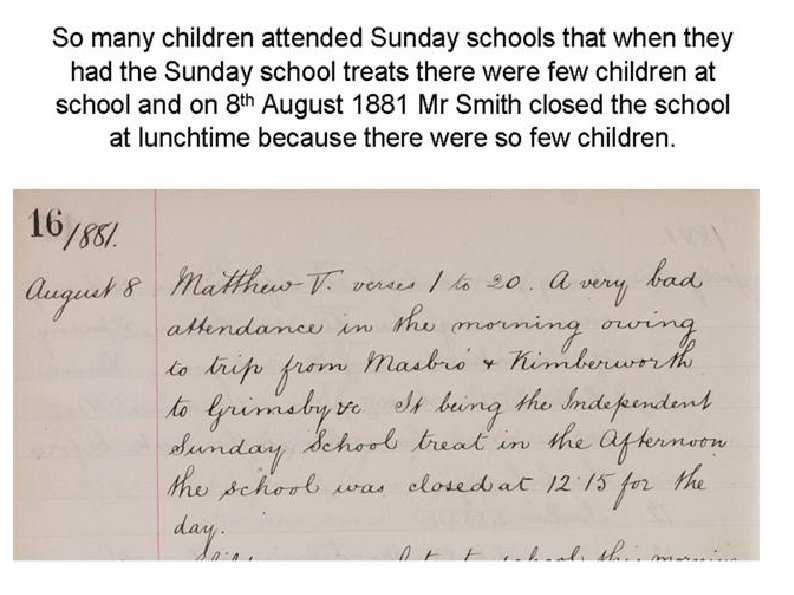 So many children attended Sunday schools that when they
had the Sunday school treats there were few children at
school and on 8th August 1881 Mr Smith closed the school
at lunchtime because there were so few children.
16/881.
August 8 Matthew V. verses 1 to 20. A very bad
attendance in the morning owing
to trip from Masbro & Kimberworth
to Grimsby &c It being the Independent
Sunday School treat in the Afternoon
the school was closed at 12.15 for the
day.